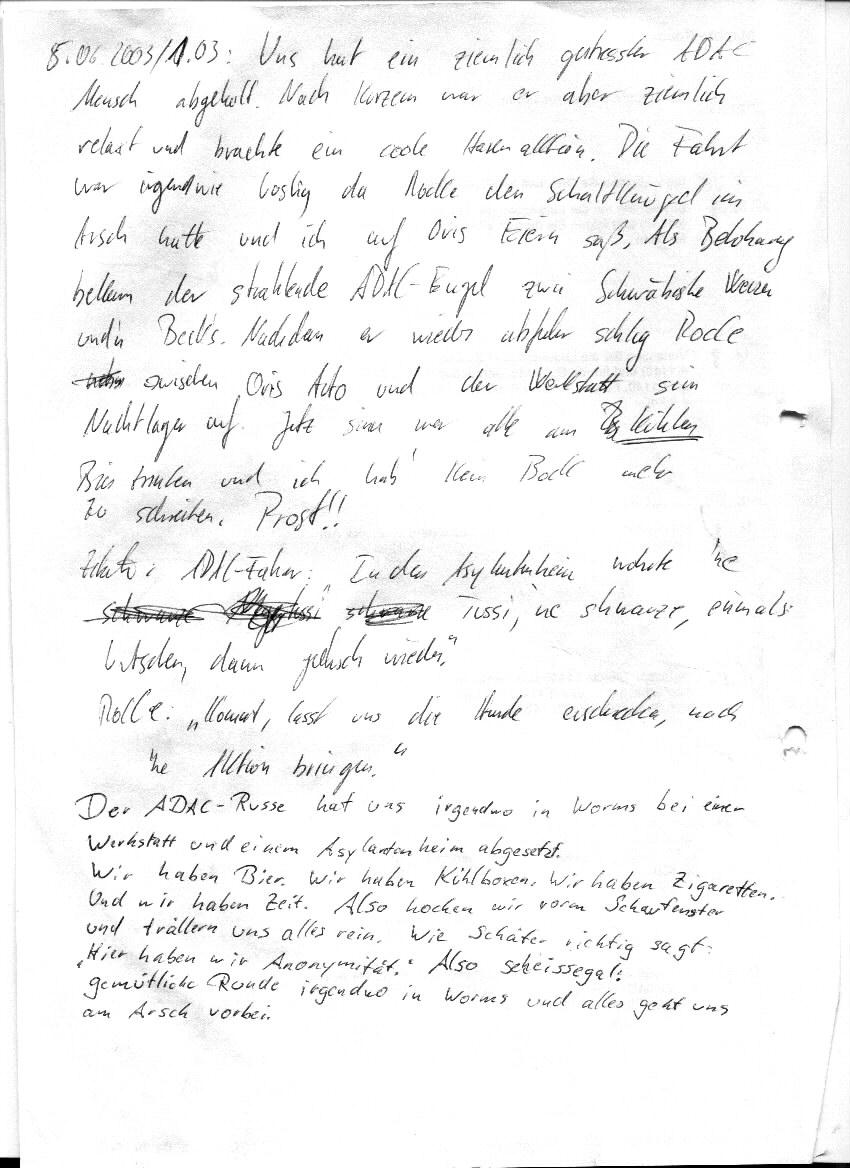 8.06.2003/1.03: Uns hat ein ziemlich gestresster ADAC
Mensch abgeholt. Nach kurzem war er aber ziemlich
relaxt und brachte ein coole Hasenaktion. Die Fahrt
war irgendwie lustig da Rolle den Schaltknüpel im
Arsch hatte und ich auf Oris Eiern saß. Als Belohnung
bekam der strahlende ADAC-Engel zwei Schwäbische Weizen
und'n Beck's. Nachdem er wieder abfuhr schlug Rolle
zwischen Oris Auto und der Werkstatt sein
Nachtlager auf. Jetz sinn mer alle am Kühlen
Bier trinken und ich hab' kein Bock mehr
zu schreiben. Prost!!
Zitate: ADAC-Fahrer: "In den Asylantenheim wohnte 'ne
Tussi, 'ne schwarze, einmal
dann wieder."
Rolle: "Kommt, lasst uns die Hunde erschrecken, noch
'ne Aktion bringen."
Der ADAC-Russe hat uns irgendwo in Worms bei einer
Werkstatt und einem Asylantenheim abgesetzt.
Wir haben Bier. Wir haben Kühlboxen. Wir haben Zigaretten.
Und wir haben Zeit. Also hocken wir vorm Schaufenster
und trällern uns alles rein. Wie Schäfer richtig sagt:
"Hier haben wir Anonymität." Also scheissegal:
gemütliche Runde irgendwo in Worms und alles geht uns
am Arsch vorbei.